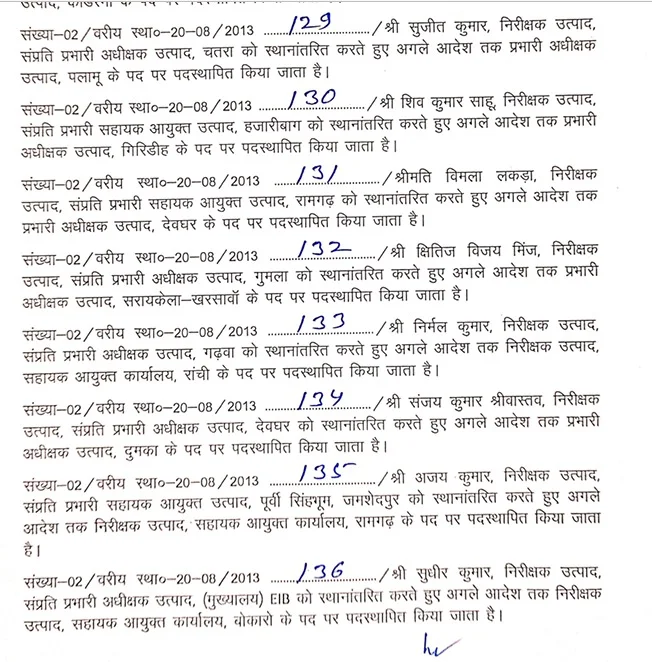 उत्पाद, कोडरमा के पद पर पदस्थापित किया जाता है।
संख्या–02/वरीय स्था०–20–08/2013 ......129....../श्री सुजीत कुमार, निरीक्षक उत्पाद,
संप्रति प्रभारी अधीक्षक उत्पाद, चतरा को स्थानांतरित करते हुए अगले आदेश तक प्रभारी अधीक्षक
उत्पाद, पलामू के पद पर पदस्थापित किया जाता है।
संख्या–02/वरीय स्था०–20–08/2013 ......130....../श्री शिव कुमार साहू, निरीक्षक उत्पाद,
संप्रति प्रभारी सहायक आयुक्त उत्पाद, हजारीबाग को स्थानांतरित करते हुए अगले आदेश तक प्रभारी
अधीक्षक उत्पाद, गिरिडीह के पद पर पदस्थापित किया जाता है।
संख्या–02/वरीय स्था०–20–08/2013 ......131....../श्रीमति विमला लकड़ा, निरीक्षक
उत्पाद, संप्रति प्रभारी सहायक आयुक्त उत्पाद, रामगढ़ को स्थानांतरित करते हुए अगले आदेश तक
प्रभारी अधीक्षक उत्पाद, देवघर के पद पर पदस्थापित किया जाता है।
संख्या–02/वरीय स्था०–20–08/2013 ......132....../श्री क्षितिज विजय मिंज, निरीक्षक
उत्पाद, संप्रति प्रभारी अधीक्षक उत्पाद, गुमला को स्थानांतरित करते हुए अगले आदेश तक प्रभारी
अधीक्षक उत्पाद, सरायकेला–खरसावाॅ के पद पर पदस्थापित किया जाता है।
संख्या–02/वरीय स्था०–20–08/2013 ......133....../श्री निर्मल कुमार, निरीक्षक उत्पाद,
संप्रति प्रभारी अधीक्षक उत्पाद, गढ़वा को स्थानांतरित करते हुए अगले आदेश तक निरीक्षक उत्पाद,
सहायक आयुक्त कार्यालय, रांची के पद पर पदस्थापित किया जाता है।
संख्या–02/वरीय स्था०–20–08/2013 ......134....../श्री संजय कुमार श्रीवास्तव, निरीक्षक
उत्पाद, संप्रति प्रभारी अधीक्षक उत्पाद, देवघर को स्थानांतरित करते हुए अगले आदेश तक प्रभारी
अधीक्षक उत्पाद, दुमका के पद पर पदस्थापित किया जाता है।
संख्या–02/वरीय स्था०–20–08/2013 ......135....../श्री अजय कुमार, निरीक्षक उत्पाद,
संप्रति प्रभारी सहायक आयुक्त उत्पाद, पूर्वी सिंहभूम, जमशेदपुर को स्थानांतरित करते हुए अगले
आदेश तक निरीक्षक उत्पाद, सहायक आयुक्त कार्यालय, रामगढ़ के पद पर पदस्थापित किया जाता
है।
संख्या–02/वरीय स्था०–20–08/2013 ......136....../श्री सुधीर कुमार, निरीक्षक उत्पाद,
संप्रति प्रभारी अधीक्षक उत्पाद, (मुख्यालय) EIB को स्थानांतरित करते हुए अगले आदेश तक निरीक्षक
उत्पाद, सहायक आयुक्त कार्यालय, बोकारो के पद पर पदस्थापित किया जाता है।